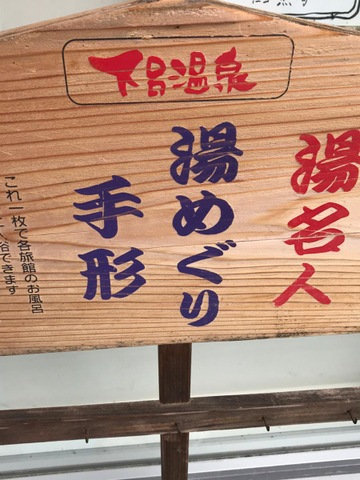 下呂温泉
湯名人
湯めぐり
手形
これ一枚で各旅館のお風呂
入浴できます